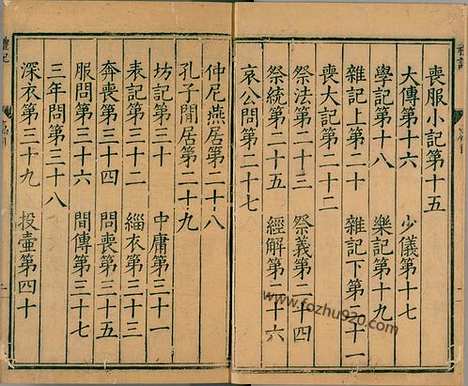 喪服小記第十五
大傳第十六 少儀第十七
學記第十八 樂記第十九
雜記上第二十 雜記下第二十一
喪大記第二十二
祭法第二十三 祭義第二十四
祭統第二十五 經解第二十六
哀公問第二十七
仲尼燕居第二十八
孔子閒居第二十九
坊記第三十 中庸第三十一
表記第三十二 緇衣第三十三
奔喪第三十四 問喪第三十五
服問第三十六 間傳第三十七
三年問第三十八
深衣第三十九 投壺第四十
禮記
www.fozhu920.com